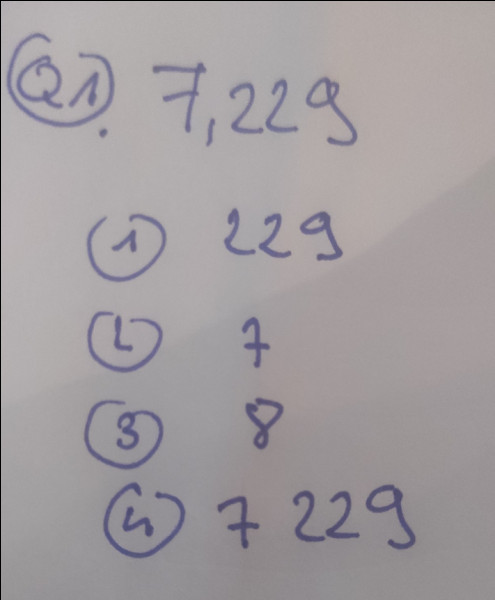 Q1. 7,229
1 229
2 7
3 8
4 7 229